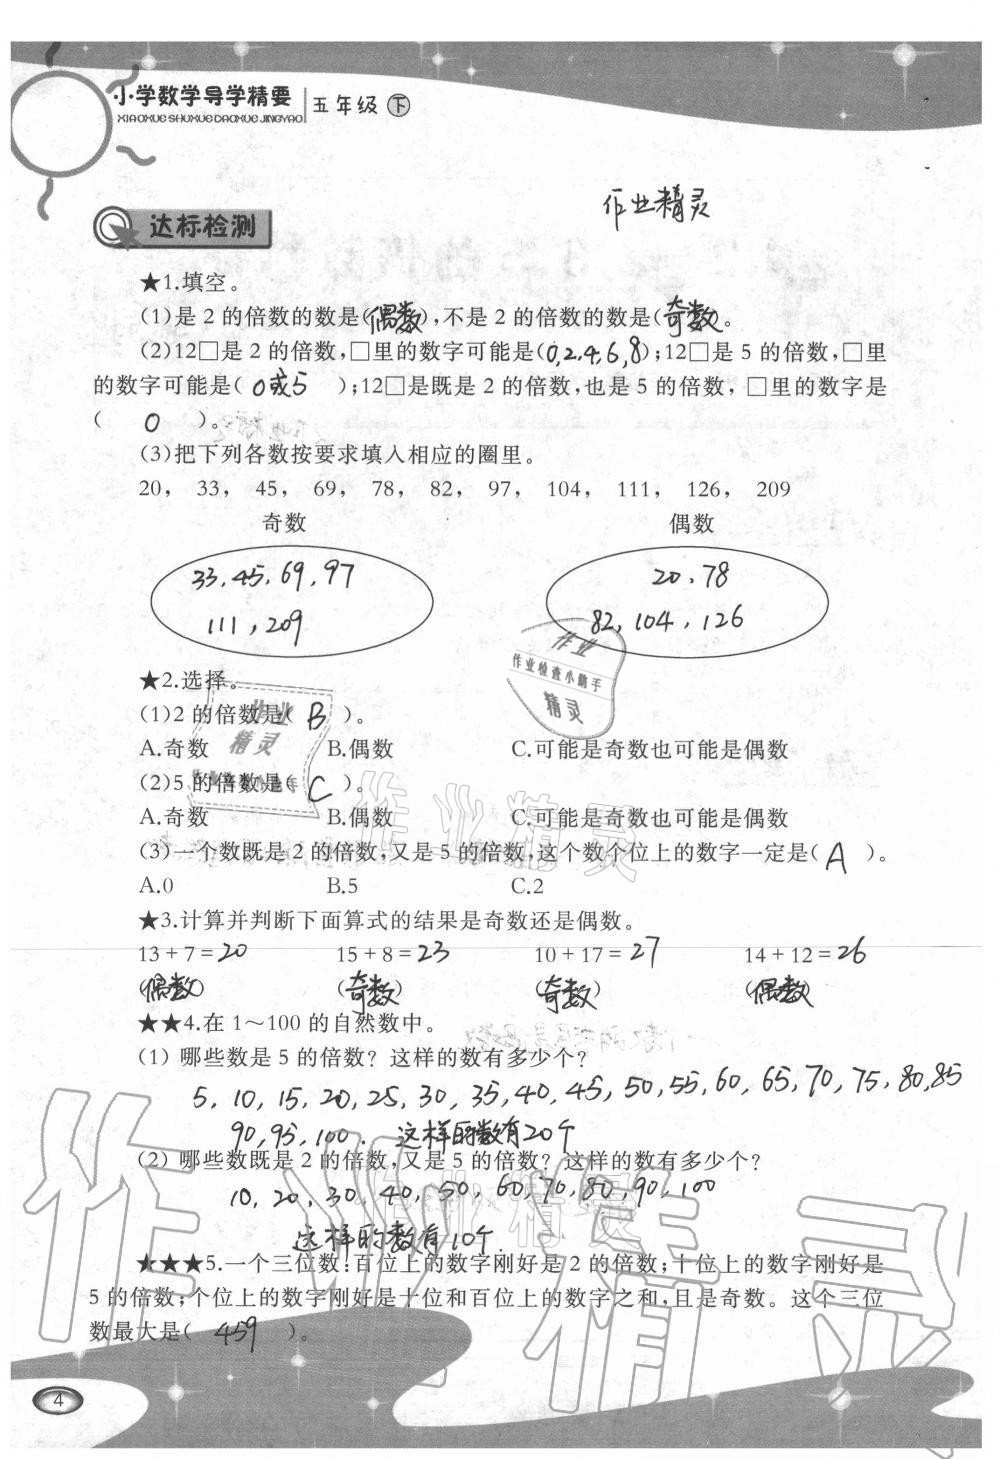 小学数学导学精要
XIAOXUESHUXUEDAOXUEJINGYAO
五年级 下
作业精灵
达标检测
★1.填空。
(1)是2的倍数的数是(偶数),不是2的倍数的数是(奇数。
(2)12□是2的倍数,□里的数字可能是(0,2.4,6,8);12□是5的倍数,□里
的数字可能是( 0或5 );12□是既是2的倍数,也是5的倍数,□里的数字是
( 0 )。
(3)把下列各数按要求填入相应的圈里。
20, 33, 45, 69, 78, 82, 97, 104, 111, 126, 209
奇数 偶数
33,45,69,97 20、78
111,209 82,104,126
★2.选择。
(1)2的倍数是( B )。
A.奇数 B.偶数 C.可能是奇数也可能是偶数
(2)5的倍数是( C )。
A.奇数 B.偶数 C.可能是奇数也可能是偶数
(3)一个数既是2的倍数,又是5的倍数,这个数个位上的数字一定是( A )。
A.0 B.5 C.2
★3.计算并判断下面算式的结果是奇数还是偶数。
13+7=20 15+8=23 10+17=27 14+12=26
(偶数) (奇数) (奇数) (偶数)
★★4.在1～100的自然数中。
(1) 哪些数是5的倍数? 这样的数有多少个?
5,10,15,20,25,30,35,40,45,50,55,60,65,70,75,80,85
90,95,100. 这样的数有20个
(2) 哪些数既是2的倍数,又是5的倍数? 这样的数有多少个?
10,20,30,40,50,60,70,80,90,100
这样的数有10个.
★★★5.一个三位数:百位上的数字刚好是2的倍数;十位上的数字刚好是
5的倍数;个位上的数字刚好是十位和百位上的数字之和,且是奇数。这个三位
数最大是( 459 )。
4
作业
作业检查小助手
精灵
作业
精灵
作业精灵
作业精灵
作业精灵